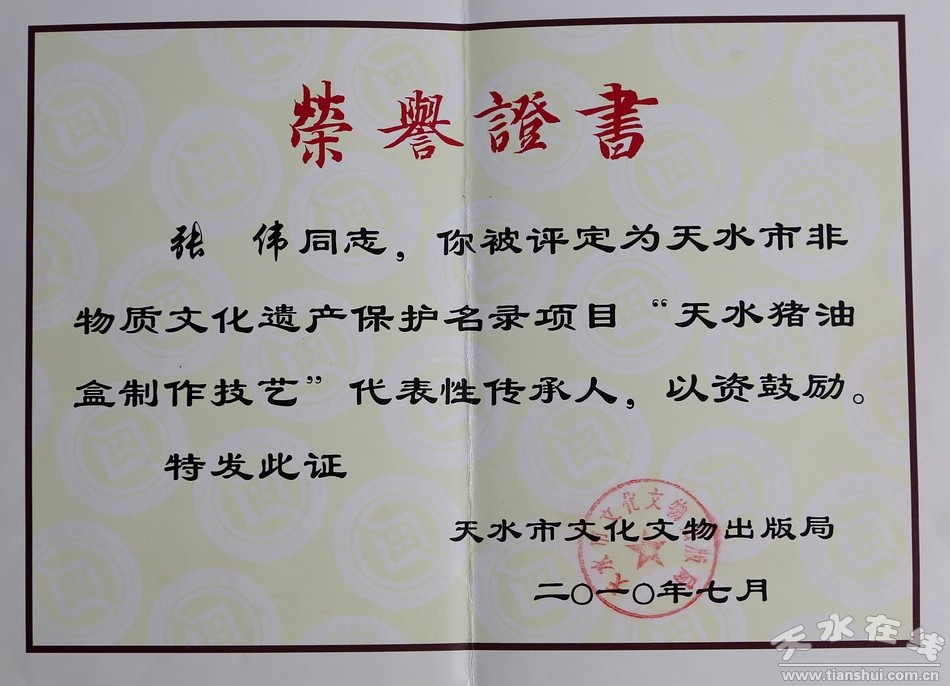 榮譽證書
张 伟同志，你被评定为天水市非
物质文化遗产保护名录项目“天水猪油
盒制作技艺”代表性传承人，以资鼓励。
特发此证
天水市文化文物出版局
二〇一〇年七月
天水市文化文物出版局
天水在线
www.tianshui.com.cn